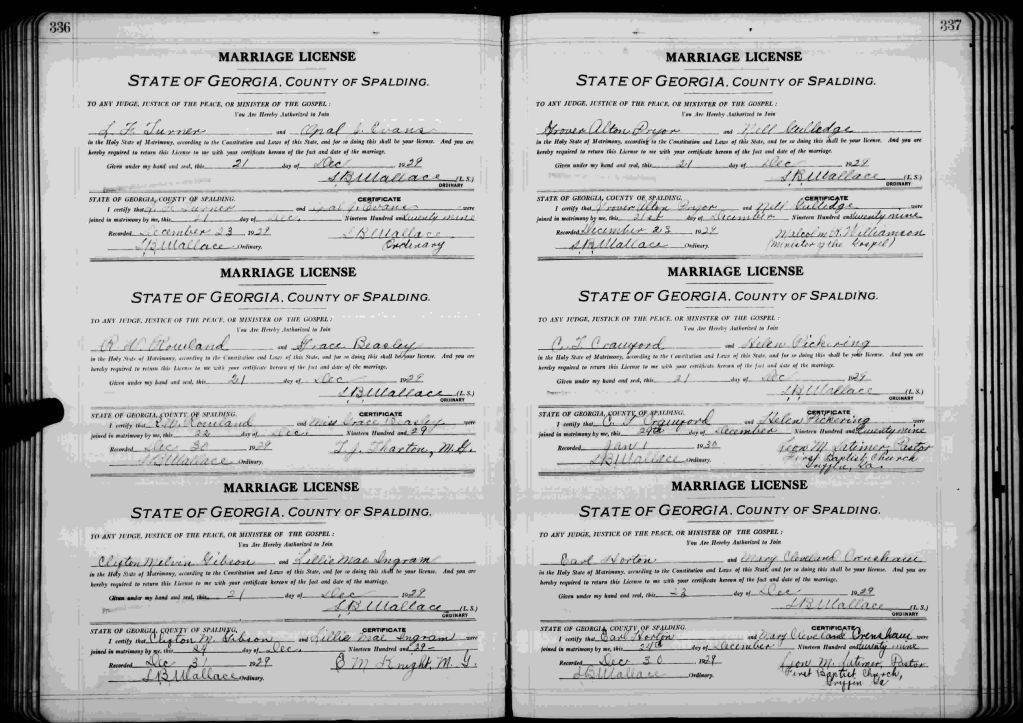 336
MARRIAGE LICENSE
STATE OF GEORGIA, COUNTY OF SPALDING.
TO ANY JUDGE, JUSTICE OF THE PEACE, OR MINISTER OF THE GOSPEL:
You Are Hereby Authorized to Join
L. F. Turner and Opal J. Evans
in the Holy State of Matrimony, according to the Constitution and Laws of this State, and for so doing this shall be your license. And you are
hereby required to return this License to me with your certificate hereon of the fact and date of the marriage.
Given under my hand and seal, this 21 day of Dec 1929
S.B. Wallace (L. S.)
ORDINARY
STATE OF GEORGIA, COUNTY OF SPALDING. CERTIFICATE
I certify that L. F. Turner and Opal J. Evans were
joined in matrimony by me, this 21 day of Dec. Nineteen Hundred and twenty nine
Recorded December 23 1929 S B Wallace
S.B. Wallace Ordinary. Ordinary
MARRIAGE LICENSE
STATE OF GEORGIA, COUNTY OF SPALDING.
TO ANY JUDGE, JUSTICE OF THE PEACE, OR MINISTER OF THE GOSPEL:
You Are Hereby Authorized to Join
R. W. Rowland and Grace Beasley
in the Holy State of Matrimony, according to the Constitution and Laws of this State, and for so doing this shall be your license. And you are
hereby required to return this License to me with your certificate hereon of the fact and date of the marriage.
Given under my hand and seal, this 21 day of Dec 1929
S.B. Wallace (L. S.)
ORDINARY
STATE OF GEORGIA, COUNTY OF SPALDING. CERTIFICATE
I certify that R. W. Rowland and Miss Grace Beasley were
joined in matrimony by me, this 22 day of Dec. Nineteen Hundred and 29
Recorded Dec 30 1929 T. J. Tharton, M. G.
S.B. Wallace Ordinary.
MARRIAGE LICENSE
STATE OF GEORGIA, COUNTY OF SPALDING.
TO ANY JUDGE, JUSTICE OF THE PEACE, OR MINISTER OF THE GOSPEL:
You Are Hereby Authorized to Join
Clifton Melvin Gibson and Lillie Mae Ingram
in the Holy State of Matrimony, according to the Constitution and Laws of this State, and for so doing this shall be your license. And you are
hereby required to return this License to me with your certificate hereon of the fact and date of the marriage.
Given under my hand and seal, this 21 day of Dec 1929
S.B. Wallace (L. S.)
ORDINARY
STATE OF GEORGIA, COUNTY OF SPALDING. CERTIFICATE
I certify that Clifton M. Gibson and Lillie Mae Ingram were
joined in matrimony by me, this 29 day of Dec. Nineteen Hundred and 29-
Recorded Dec 31 1929 E M Knight, M. G.
S.B. Wallace Ordinary.
337
MARRIAGE LICENSE
STATE OF GEORGIA, COUNTY OF SPALDING.
TO ANY JUDGE, JUSTICE OF THE PEACE, OR MINISTER OF THE GOSPEL:
You Are Hereby Authorized to Join
Grover Alton Pryor and Nell Gulledge
in the Holy State of Matrimony, according to the Constitution and Laws of this State, and for so doing this shall be your license. And you are
hereby required to return this License to me with your certificate hereon of the fact and date of the marriage.
Given under my hand and seal, this 21 day of Dec 1929
S.B. Wallace (L. S.)
ORDINARY
STATE OF GEORGIA, COUNTY OF SPALDING. CERTIFICATE
I certify that Grover Alton Pryor and Nell Gulledge were
joined in matrimony by me, this 21st day of December Nineteen Hundred and twenty nine
Recorded December 23 1929 Malcolm A. Williamson
S.B. Wallace Ordinary. (Minister of the Gospel)
MARRIAGE LICENSE
STATE OF GEORGIA, COUNTY OF SPALDING.
TO ANY JUDGE, JUSTICE OF THE PEACE, OR MINISTER OF THE GOSPEL:
You Are Hereby Authorized to Join
C. T. Crawford and Helen Pickering
in the Holy State of Matrimony, according to the Constitution and Laws of this State, and for so doing this shall be your license. And you are
hereby required to return this License to me with your certificate hereon of the fact and date of the marriage.
Given under my hand and seal, this 21 day of Dec 1929
S.B. Wallace (L. S.)
ORDINARY
STATE OF GEORGIA, COUNTY OF SPALDING. CERTIFICATE
I certify that C. T. Crawford and Helen Pickering were
joined in matrimony by me, this 29th day of December Nineteen Hundred and twenty nine
Recorded Jan 1 1930 Leon M. Latimer, Pastor
S.B. Wallace Ordinary. First Baptist Church
Griffin, Ga.
MARRIAGE LICENSE
STATE OF GEORGIA, COUNTY OF SPALDING.
TO ANY JUDGE, JUSTICE OF THE PEACE, OR MINISTER OF THE GOSPEL:
You Are Hereby Authorized to Join
Earl Horton and Mary Cleveland Crenshaw
in the Holy State of Matrimony, according to the Constitution and Laws of this State, and for so doing this shall be your license. And you are
hereby required to return this License to me with your certificate hereon of the fact and date of the marriage.
Given under my hand and seal, this 23 day of Dec 1929
S.B. Wallace (L. S.)
ORDINARY
STATE OF GEORGIA, COUNTY OF SPALDING. CERTIFICATE
I certify that Earl Horton and Mary Cleveland Crenshaw were
joined in matrimony by me, this 24th day of December Nineteen Hundred and twenty nine
Recorded Dec 30 1929 Leon M. Latimer, Pastor
S.B. Wallace Ordinary. First Baptist Church,
Griffin Ga